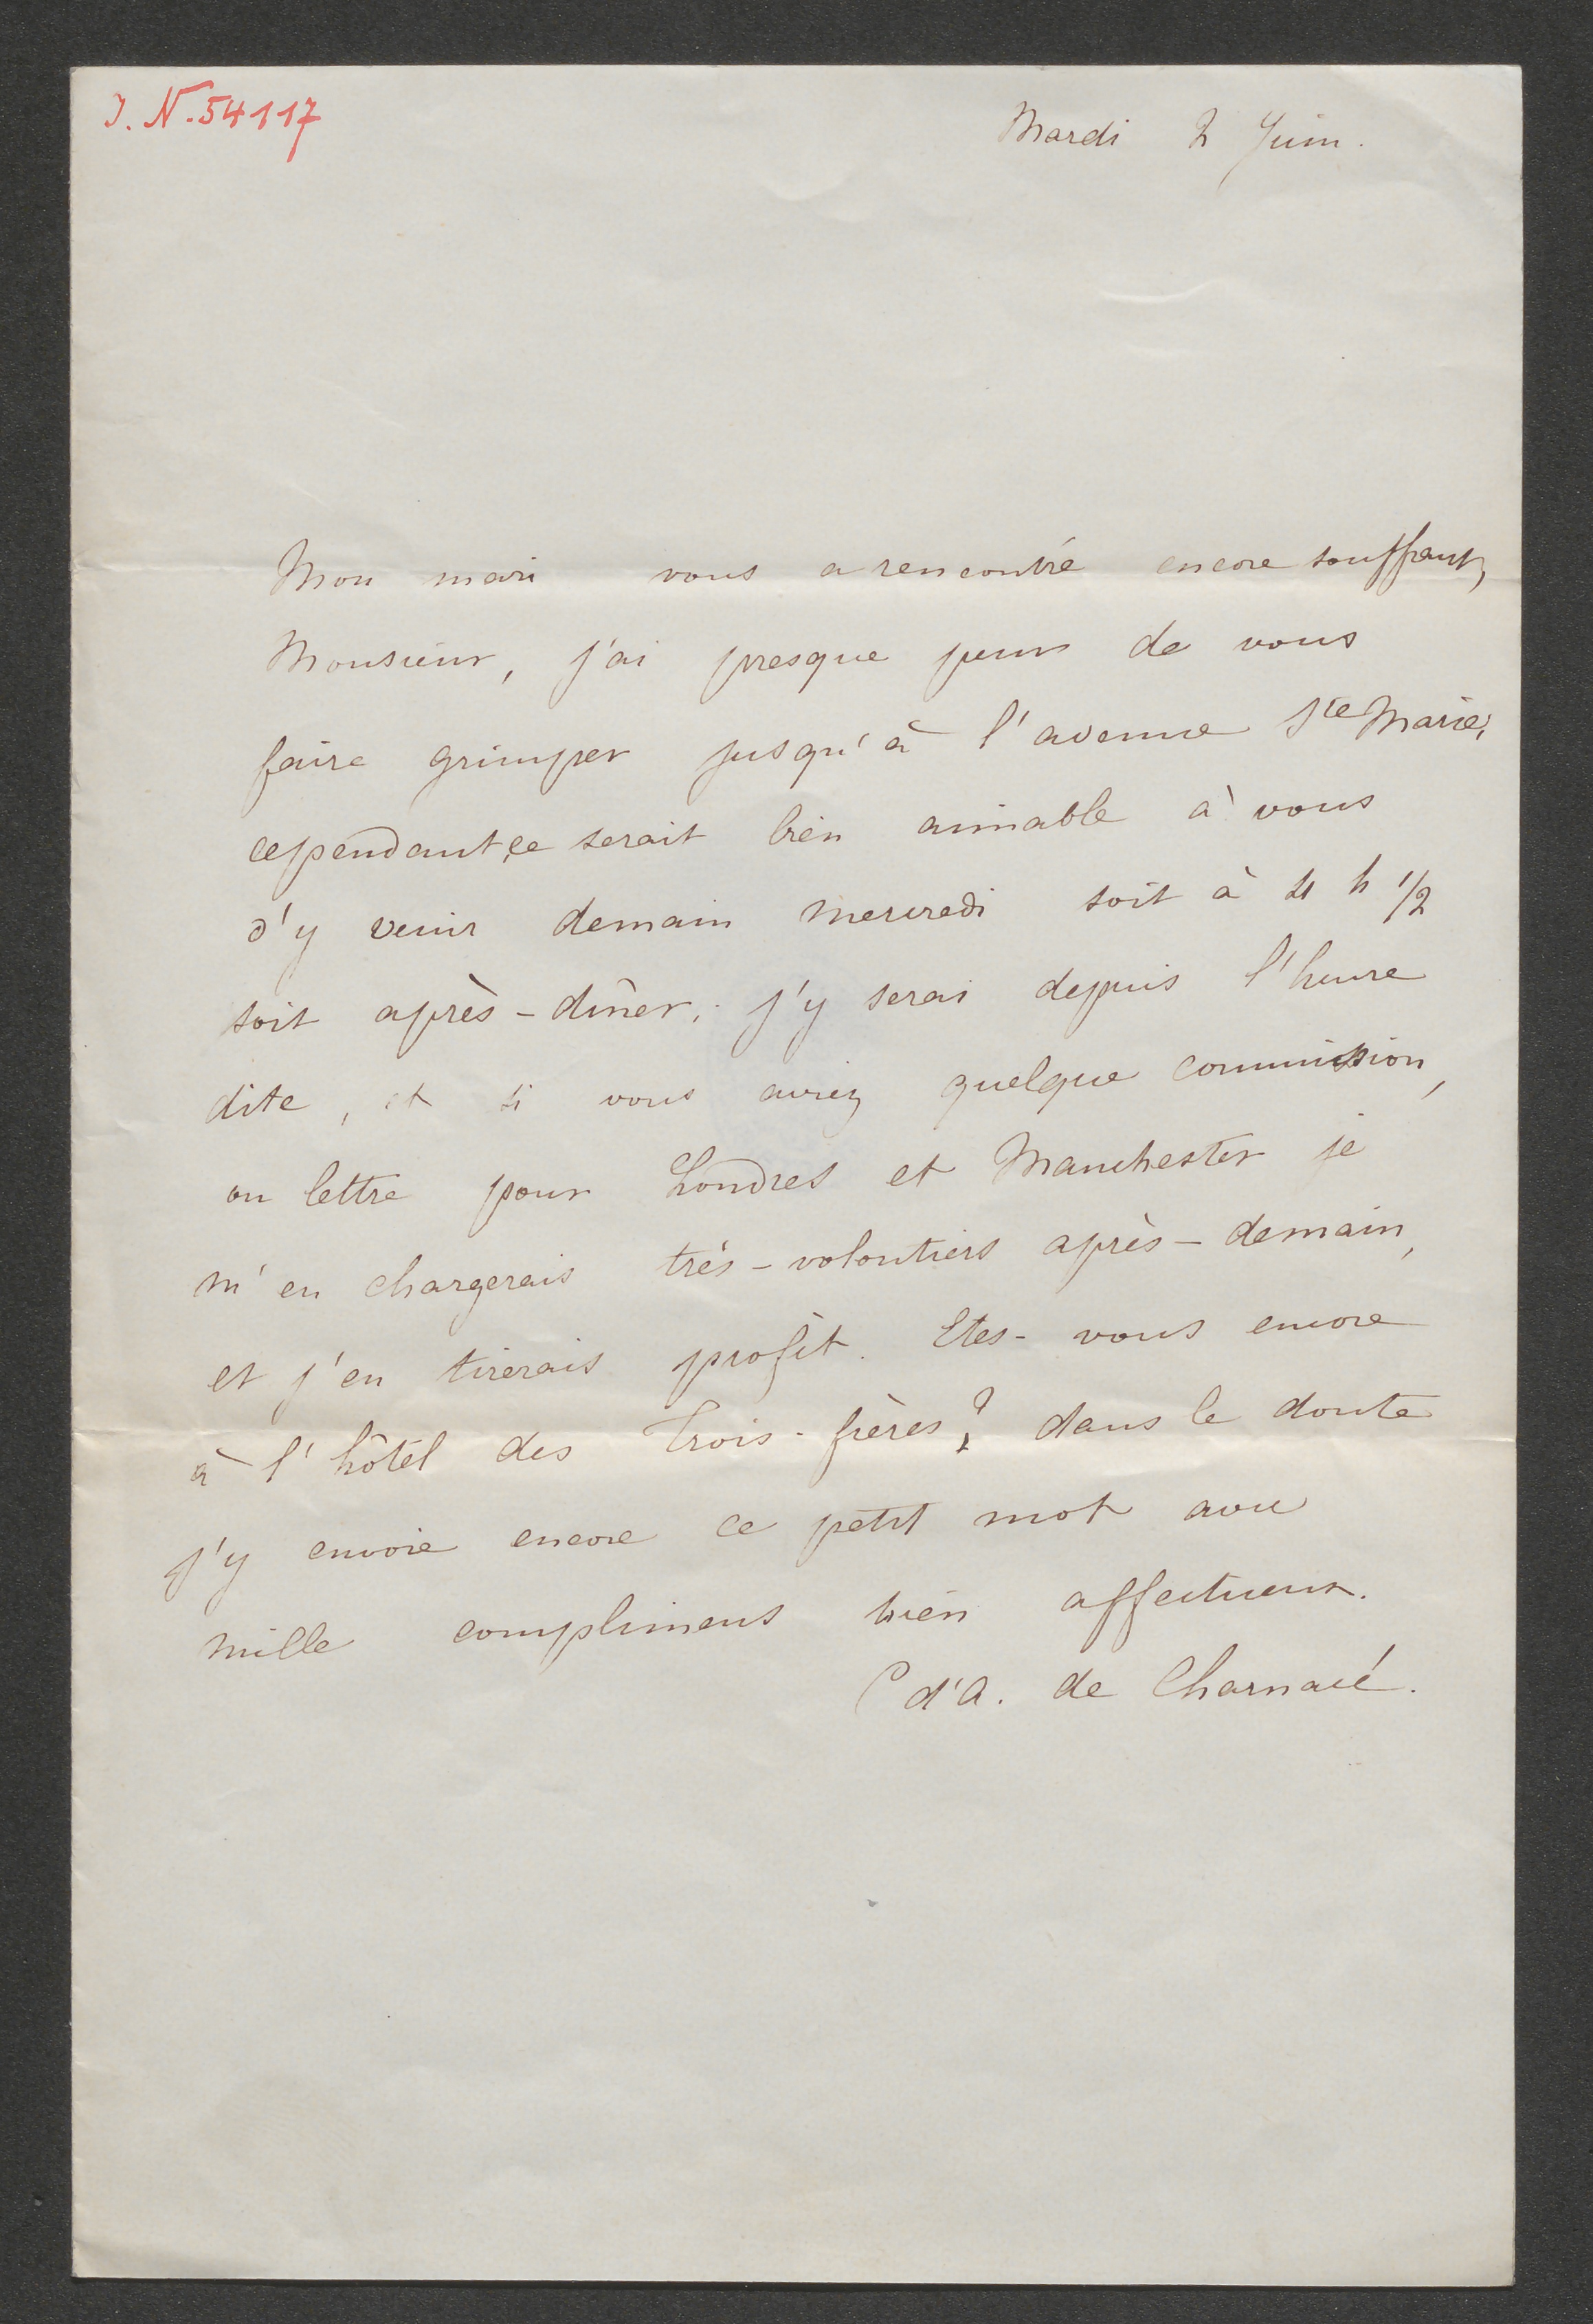 J. N. 54117
Mardi 2 Juin.
Mon mari vous a rencontré encore souffrant,
Monsieur, j'ai presque peur de vous
faire grimper jusqu'à l'avenue Ste Marie;
cependant, ce serait bien aimable à vous
d'y venir demain mercredi soit à 4 h 1/2
soit après-dîner; j'y serai depuis l'heure
dite, et si vous aviez quelque commission,
ou lettre pour Londres et Manchester je
m'en chargerais très-volontiers après-demain,
et j'en tirerais profit. Etes-vous encore
à l'hôtel des Trois-frères? dans le doute
j'y envoie encore ce petit mot avec
mille complimens bien affectueux.
C d'A. de Charnacé.